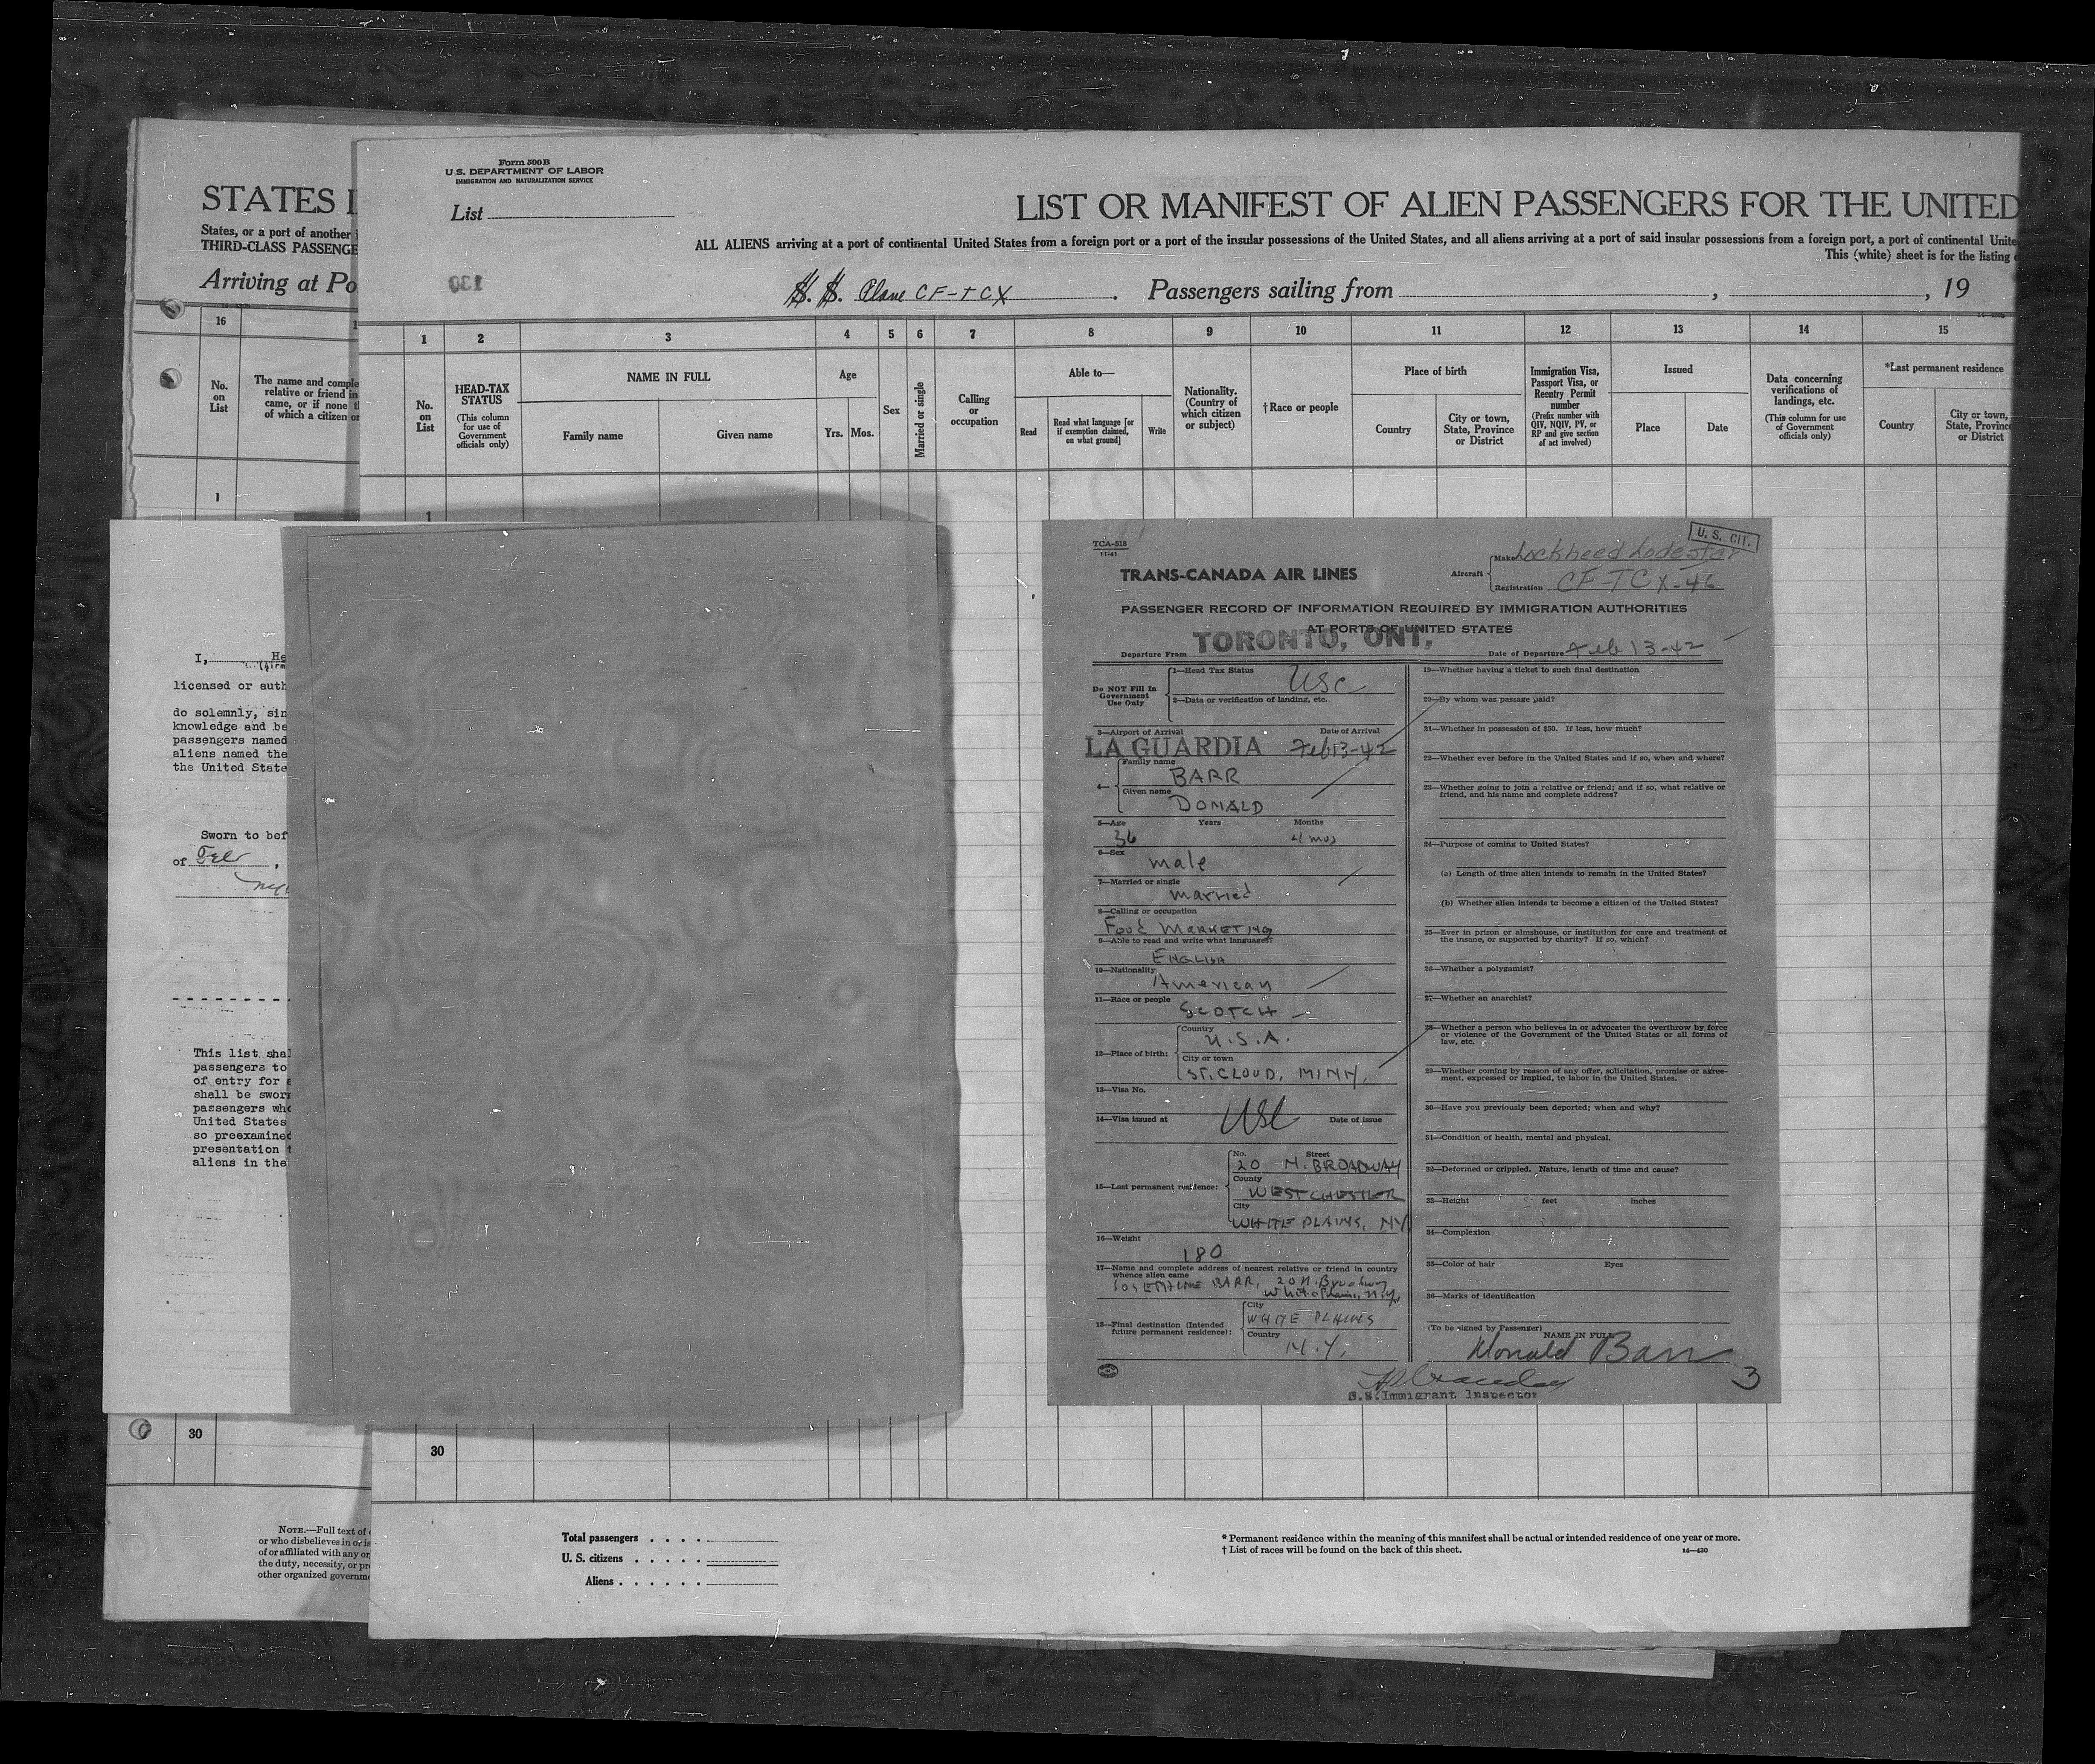 STATES I
States, or a port of another
THIRD-CLASS PASSENGE
Arriving at Po
16
No. on List
The name and comple
relative or friend in
came, or if none t
of which a citizen or
1
Form 500 B
U.S. DEPARTMENT OF LABOR
IMMIGRATION AND NATURALIZATION SERVICE
List
LIST OR MANIFEST OF ALIEN PASSENGERS FOR THE UNITED
ALL ALIENS arriving at a port of continental United States from a foreign port or a port of the insular possessions of the United States, and all aliens arriving at a port of said insular possessions from a foreign port, a port of continental Unite
This (white) sheet is for the listing
130
S. S. Plane CF-TCX . Passengers sailing from , , 19
1 2 3 4 5 6 7 8 9 10 11 12 13 14 15
No. on List
HEAD-TAX STATUS
(This column for use of Government officials only)
NAME IN FULL
Family name Given name
Age
Yrs. Mos.
Sex
Married or single
Calling or occupation
Able to—
Read
Read what language [or if exemption claimed, on what ground]
Write
Nationality. (Country of which citizen or subject)
†Race or people
Place of birth
Country
City or town, State, Province or District
Immigration Visa, Passport Visa, or Reentry Permit number
(Prefix number with QIV, NQIV, PV, or RP and give section of act involved)
Issued
Place Date
Data concerning verifications of landings, etc.
(This column for use of Government officials only)
*Last permanent residence
Country
City or town, State, Province or District
1
I, He
licensed or auth
do solemnly, sin
knowledge and be
passengers named
aliens named the
the United State
Sworn to bef
of Feb .
This list shal
passengers to
of entry for a
shall be sworn
passengers who
United States
so preexamined
presentation t
aliens in the
TCA-518
11-41
U. S. CIT.
TRANS-CANADA AIR LINES
Aircraft
Make Lockheed Lodestar
Registration CF-TCX-46
PASSENGER RECORD OF INFORMATION REQUIRED BY IMMIGRATION AUTHORITIES
AT PORTS OF UNITED STATES
Departure From TORONTO, ONT. Date of Departure Feb 13-42
Do NOT Fill In Government Use Only
1—Head Tax Status USC
2—Data or verification of landing, etc.
3—Airport of Arrival Date of Arrival
LA GUARDIA Feb 13-42
4— Family name
BARR
Given name
DONALD
5—Age Years Months
36 4 mos
6—Sex
male
7—Married or single
married
8—Calling or occupation
Food MARKETING
9—Able to read and write what languages?
ENGLISH
10—Nationality
American
11—Race or people
SCOTCH
12—Place of birth:
Country
U.S.A.
City or town
ST. CLOUD, MINN.
13—Visa No.
14—Visa issued at USC Date of issue
15—Last permanent residence:
No. Street
20 N. BROADWAY
County
WESTCHESTER
City
WHITE PLAINS, NY
16—Weight
180
17—Name and complete address of nearest relative or friend in country
whence alien came
BARR, 20 N. Broadway
White Plains, N.Y.
18—Final destination (Intended future permanent residence):
City
WHITE PLAINS
Country
N.Y.
19—Whether having a ticket to such final destination
20—By whom was passage paid?
21—Whether in possession of $50. If less, how much?
22—Whether ever before in the United States and if so, when and where?
23—Whether going to join a relative or friend; and if so, what relative or
friend, and his name and complete address?
24—Purpose of coming to United States?
(a) Length of time alien intends to remain in the United States?
(b) Whether alien intends to become a citizen of the United States?
25—Ever in prison or almshouse, or institution for care and treatment of
the insane, or supported by charity? If so, which?
26—Whether a polygamist?
27—Whether an anarchist?
28—Whether a person who believes in or advocates the overthrow by force
or violence of the Government of the United States or all forms of
law, etc.
29—Whether coming by reason of any offer, solicitation, promise or agree-
ment, expressed or implied, to labor in the United States.
30—Have you previously been deported; when and why?
31—Condition of health, mental and physical.
32—Deformed or crippled. Nature, length of time and cause?
33—Height feet inches
34—Complexion
35—Color of hair Eyes
36—Marks of identification
(To be signed by Passenger) NAME IN FULL
Donald Barr
3
U.S. Immigrant Inspector
30
30
NOTE.—Full text of
or who disbelieves in or is
of or affiliated with any or
the duty, necessity, or pr
other organized governme
Total passengers . . . .
U. S. citizens . . . . .
Aliens . . . . . .
* Permanent residence within the meaning of this manifest shall be actual or intended residence of one year or more.
† List of races will be found on the back of this sheet.
14—430